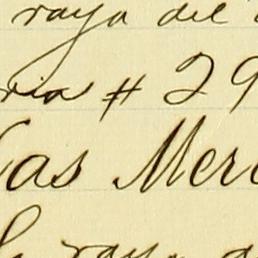 raya del
ria # 29
las Mer
raya